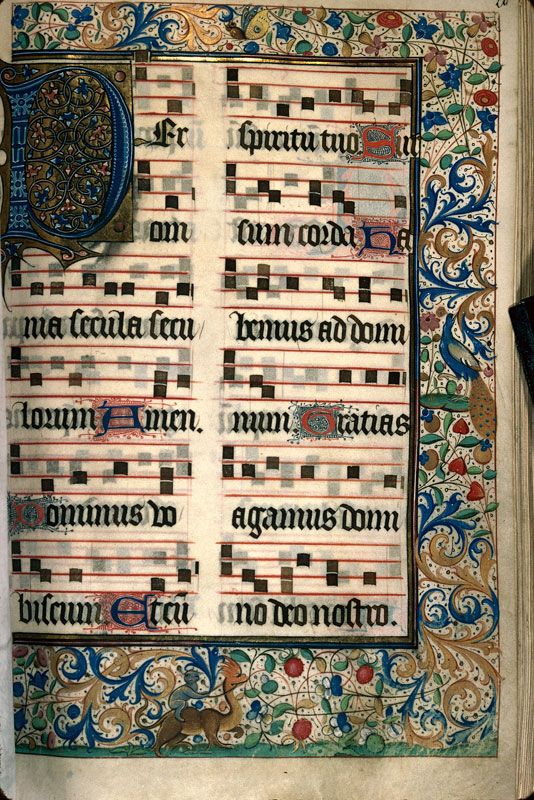 Per
om
nia secula secu
lorum Amen.
Dominus vo
biscum Et cū
spiritu tuo Sur
sum corda Ha
bemus ad domi
num Gratias
agamus domi
no deo nostro.